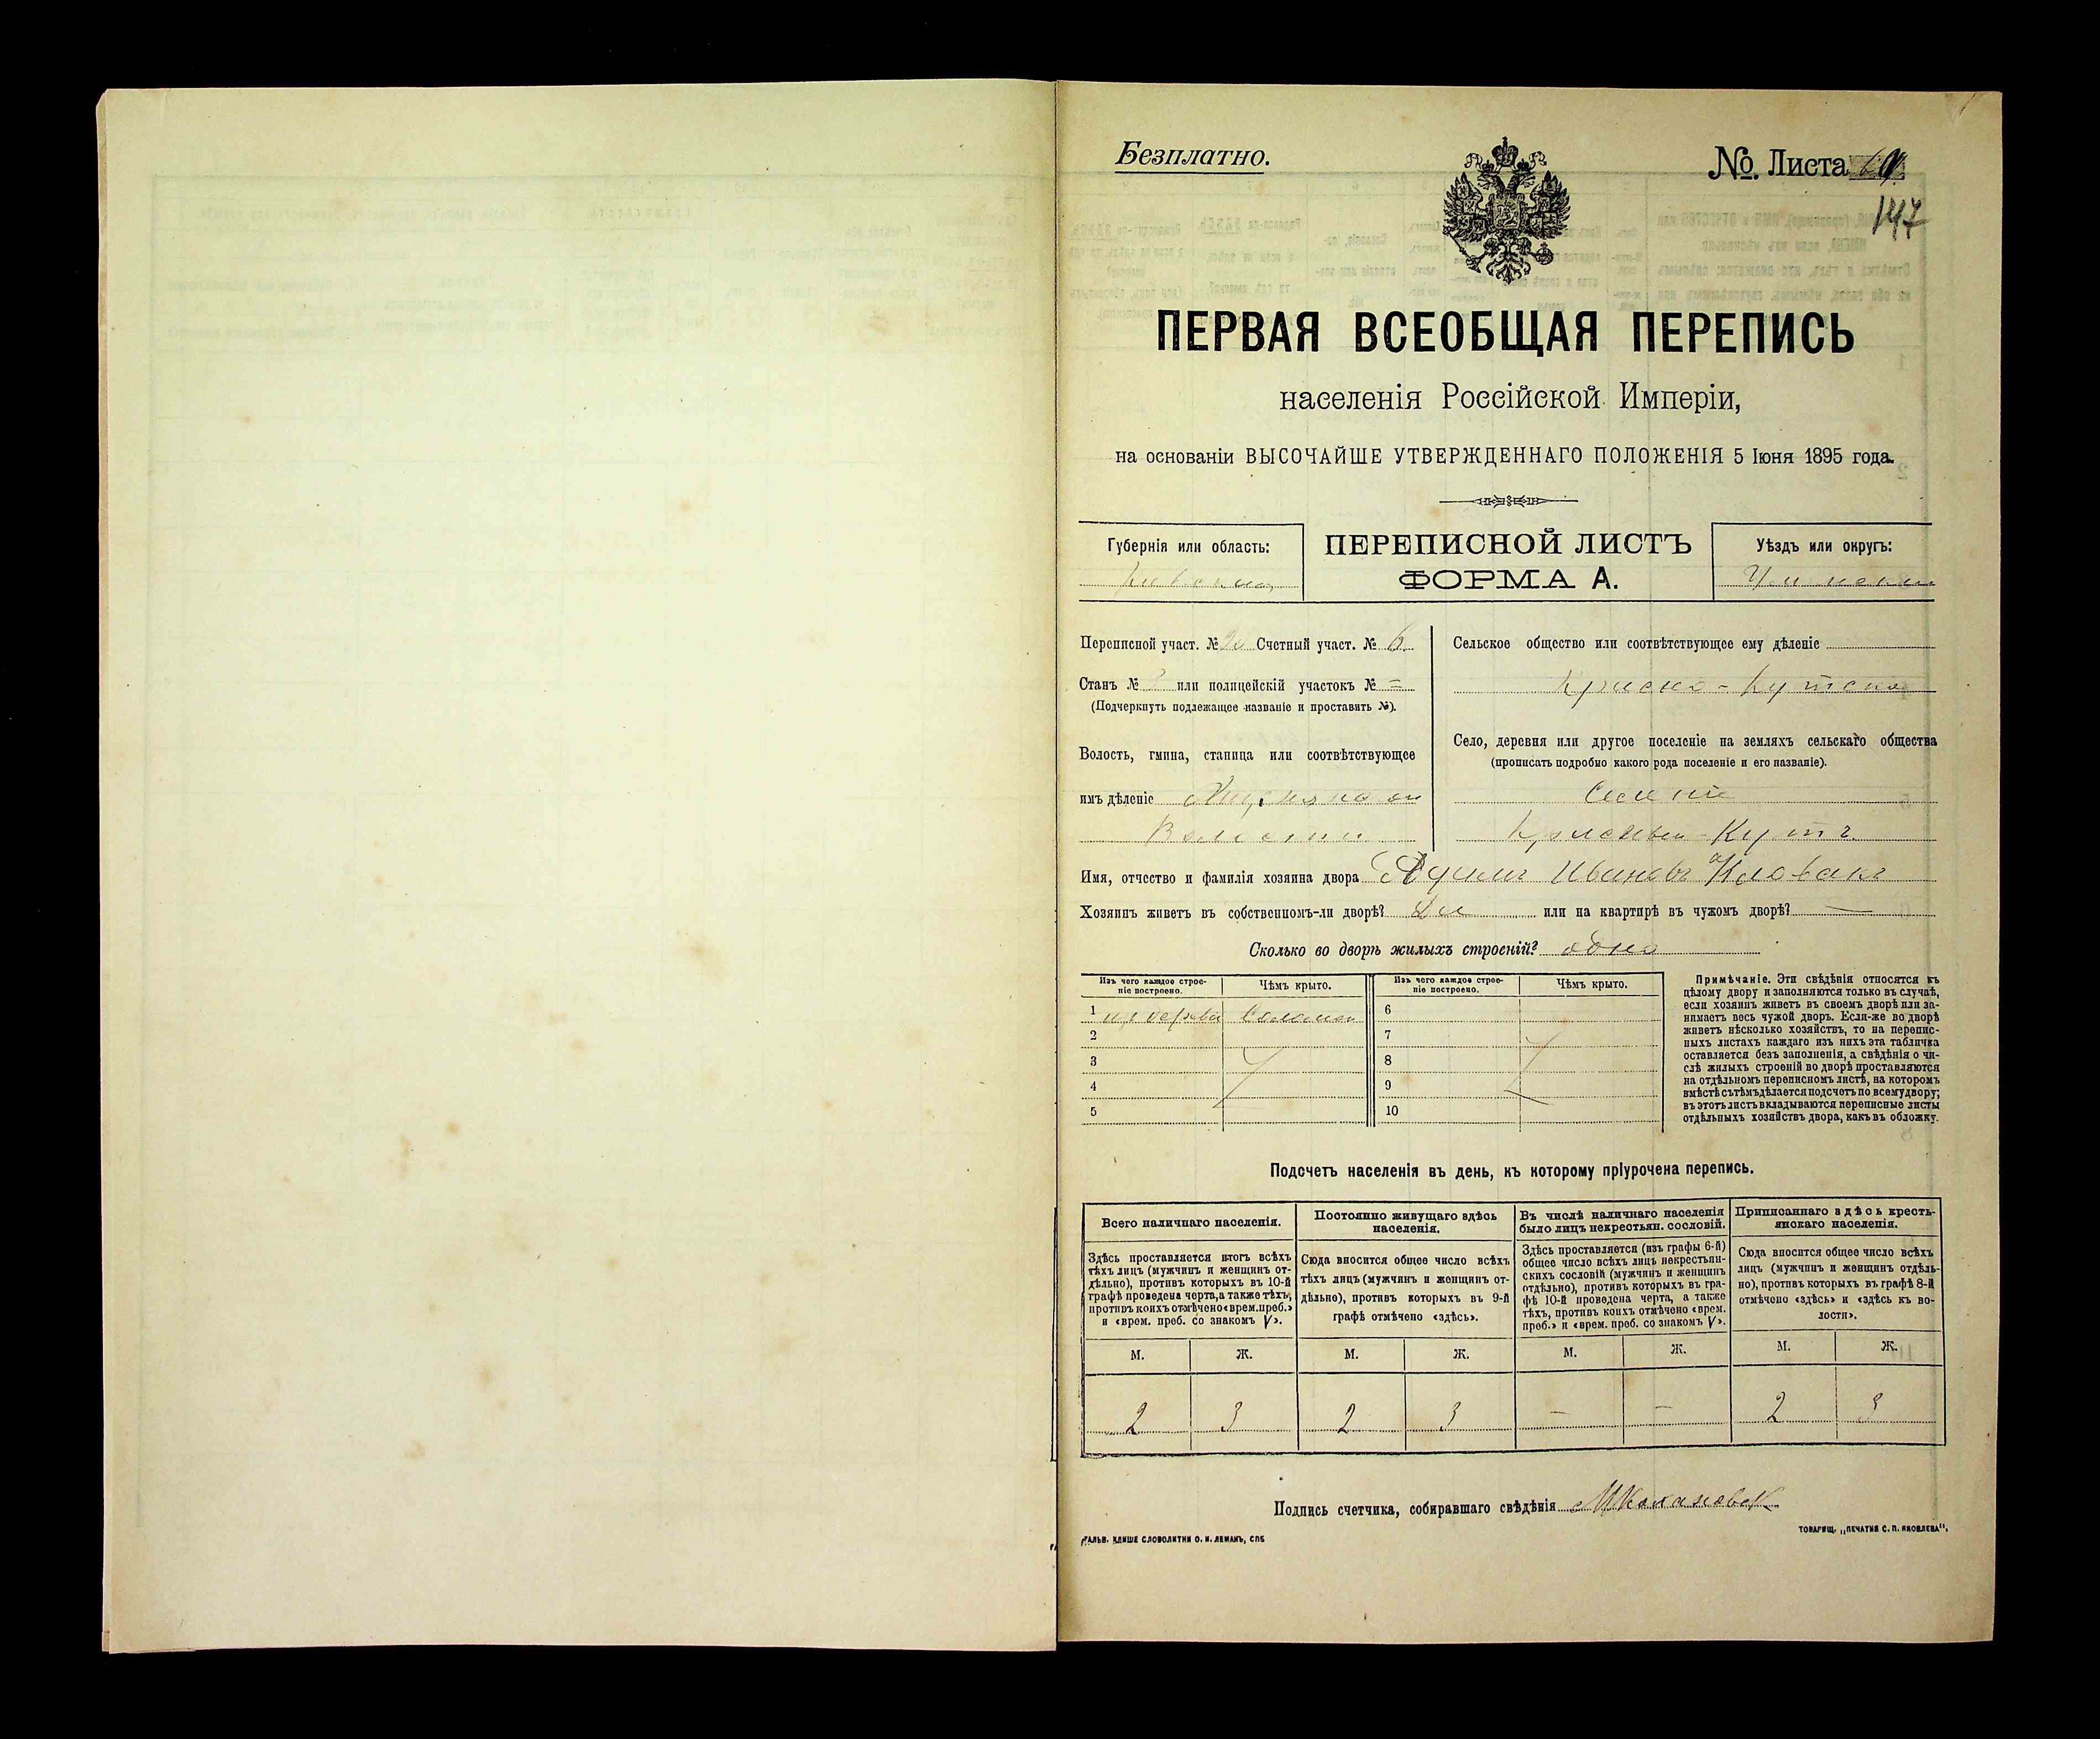 Безплатно.
№. Листа
147
ПЕРВАЯ ВСЕОБЩАЯ ПЕРЕПИСЬ
населенія Россійской Имперіи,
на основаніи ВЫСОЧАЙШЕ УТВЕРЖДЕННАГО ПОЛОЖЕНІЯ 5 Іюня 1895 года.
Губернія или область:
Кіевская
ПЕРЕПИСНОЙ ЛИСТЪ
ФОРМА А.
Уѣздъ или округъ:
Переписной участ. № Счетный участ. № 6
Станъ № или полицейскій участокъ № =
(Подчеркнуть подлежащее названіе и проставить №).
Волость, гмина, станица или соотвѣтствующее
имъ дѣленіе
Волости
Сельское общество или соотвѣтствующее ему дѣленіе
Село, деревня или другое поселеніе на земляхъ сельскаго общества
(прописать подробно какого рода поселеніе и его названіе).
Кутъ
Имя, отчество и фамилія хозяина двора Ивановъ
Хозяинъ живетъ въ собственномъ-ли дворѣ? Да или на квартирѣ въ чужомъ дворѣ? —
Сколько во дворѣ жилыхъ строеній? одно
Изъ чего каждое строе-
ніе построено.
Чѣмъ крыто.
Изъ чего каждое строе-
ніе построено.
Чѣмъ крыто.
1 изъ дерева соломой 6
2 7
3 8
4 9
5 10
Примѣчаніе. Эти свѣдѣнія относятся къ
цѣлому двору и заполняются только въ случаѣ,
если хозяинъ живетъ въ своемъ дворѣ или за-
нимаетъ весь чужой дворъ. Если-же во дворѣ
живетъ нѣсколько хозяйствъ, то на перепис-
ныхъ листахъ каждаго изъ нихъ эта табличка
оставляется безъ заполненія, а свѣдѣнія о чи-
слѣ жилыхъ строеній во дворѣ проставляются
на отдѣльномъ переписномъ листѣ, на которомъ
вмѣстѣ съ тѣмъ дѣлается подсчетъ по всему двору;
въ этотъ листъ вкладываются переписные листы
отдѣльныхъ хозяйствъ двора, какъ въ обложку.
Подсчетъ населенія въ день, къ которому пріурочена перепись.
Всего наличнаго населенія.
Здѣсь проставляется итогъ всѣхъ
тѣхъ лицъ (мужчинъ и женщинъ от-
дѣльно), противъ которыхъ въ 10-й
графѣ проведена черта, а также тѣхъ,
противъ коихъ отмѣчено «врем. преб.»
и «врем. преб. со знакомъ V».
Постоянно живущаго здѣсь
населенія.
Сюда вносится общее число всѣхъ
тѣхъ лицъ (мужчинъ и женщинъ от-
дѣльно), противъ которыхъ въ 9-й
графѣ отмѣчено «здѣсь».
Въ числѣ наличнаго населенія
было лицъ некрестьян. сословій.
Здѣсь проставляется (изъ графы 6-й)
общее число всѣхъ лицъ некрестьян-
скихъ сословій (мужчинъ и женщинъ
отдѣльно), противъ которыхъ въ гра-
фѣ 10-й проведена черта, а также
тѣхъ, противъ коихъ отмѣчено «врем.
преб.» и «врем. преб. со знакомъ V».
Приписаннаго здѣсь кресть-
янскаго населенія.
Сюда вносится общее число всѣхъ
лицъ (мужчинъ и женщинъ отдѣль-
но), противъ которыхъ въ графѣ 8-й
отмѣчено «здѣсь» и «здѣсь къ во-
лости».
М. Ж. М. Ж. М. Ж. М. Ж.
2 3 2 3 — — 2 3
Подпись счетчика, собиравшаго свѣдѣнія
ГАЛЬВ. КЛИШЕ СЛОВОЛИТНИ О. И. ЛЕМАНЪ, СПБ
ТОВАРИЩ. „ПЕЧАТНЯ С. П. ЯКОВЛЕВА“.